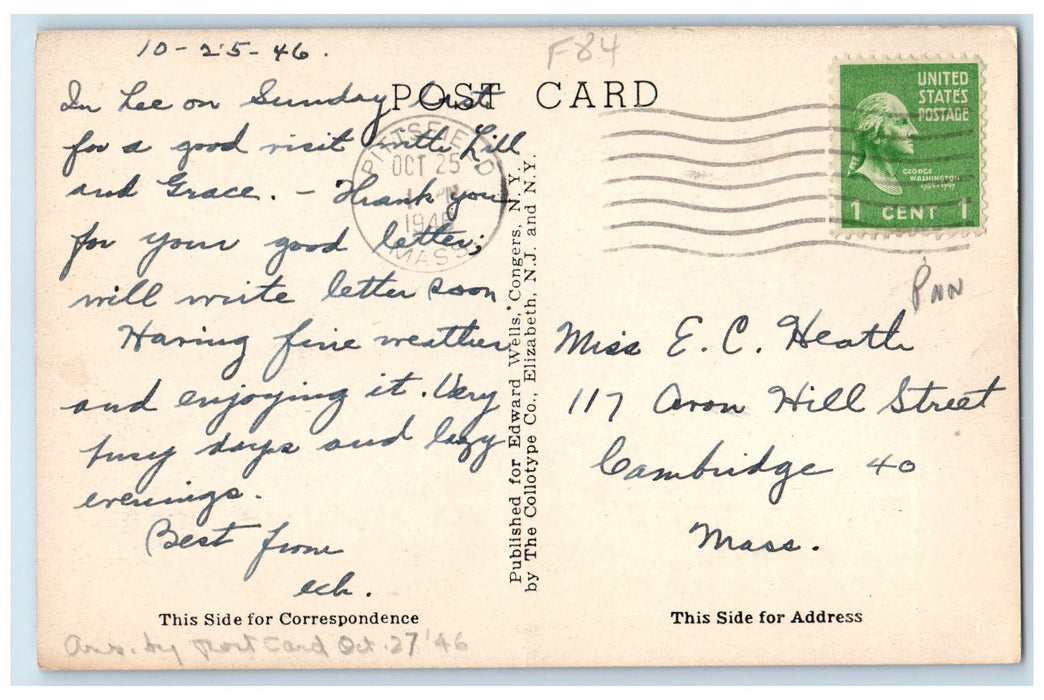 10-25-46.
In Lee on Sunday last
for a good visit with Lill
and Grace. - Thank you
for your good letter;
will write letter soon
Having fine weather
and enjoying it. Very
busy days and lazy
evenings.
Best from
ech.
This Side for Correspondence
Ans. by Post Card Oct. 27 '46
F84
POST CARD
PITTSFIELD
OCT 25
PM
1946
MASS
Published for Edward Wells, Congers, N. Y.
by The Collotype Co., Elizabeth, N.J. and N.Y.
UNITED
STATES
POSTAGE
GEORGE
WASHINGTON
1789-1797
1 CENT 1
Miss E. C. Heath
117 Avon Hill Street
Cambridge 40
Mass.
This Side for Address